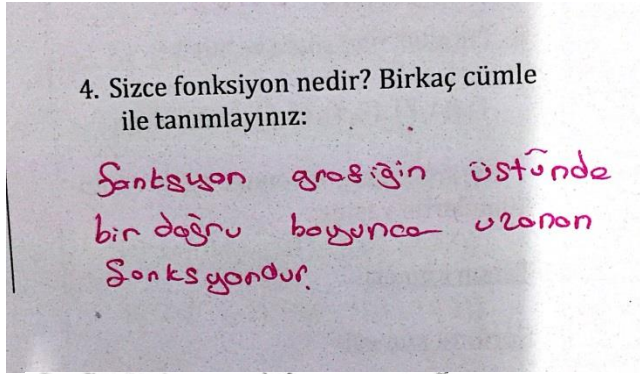 4. Sizce fonksiyon nedir? Birkaç cümle
ile tanımlayınız:
fonksyon grafiğin üstünde
bir doğru boyunca uzanan
fonksyondur.